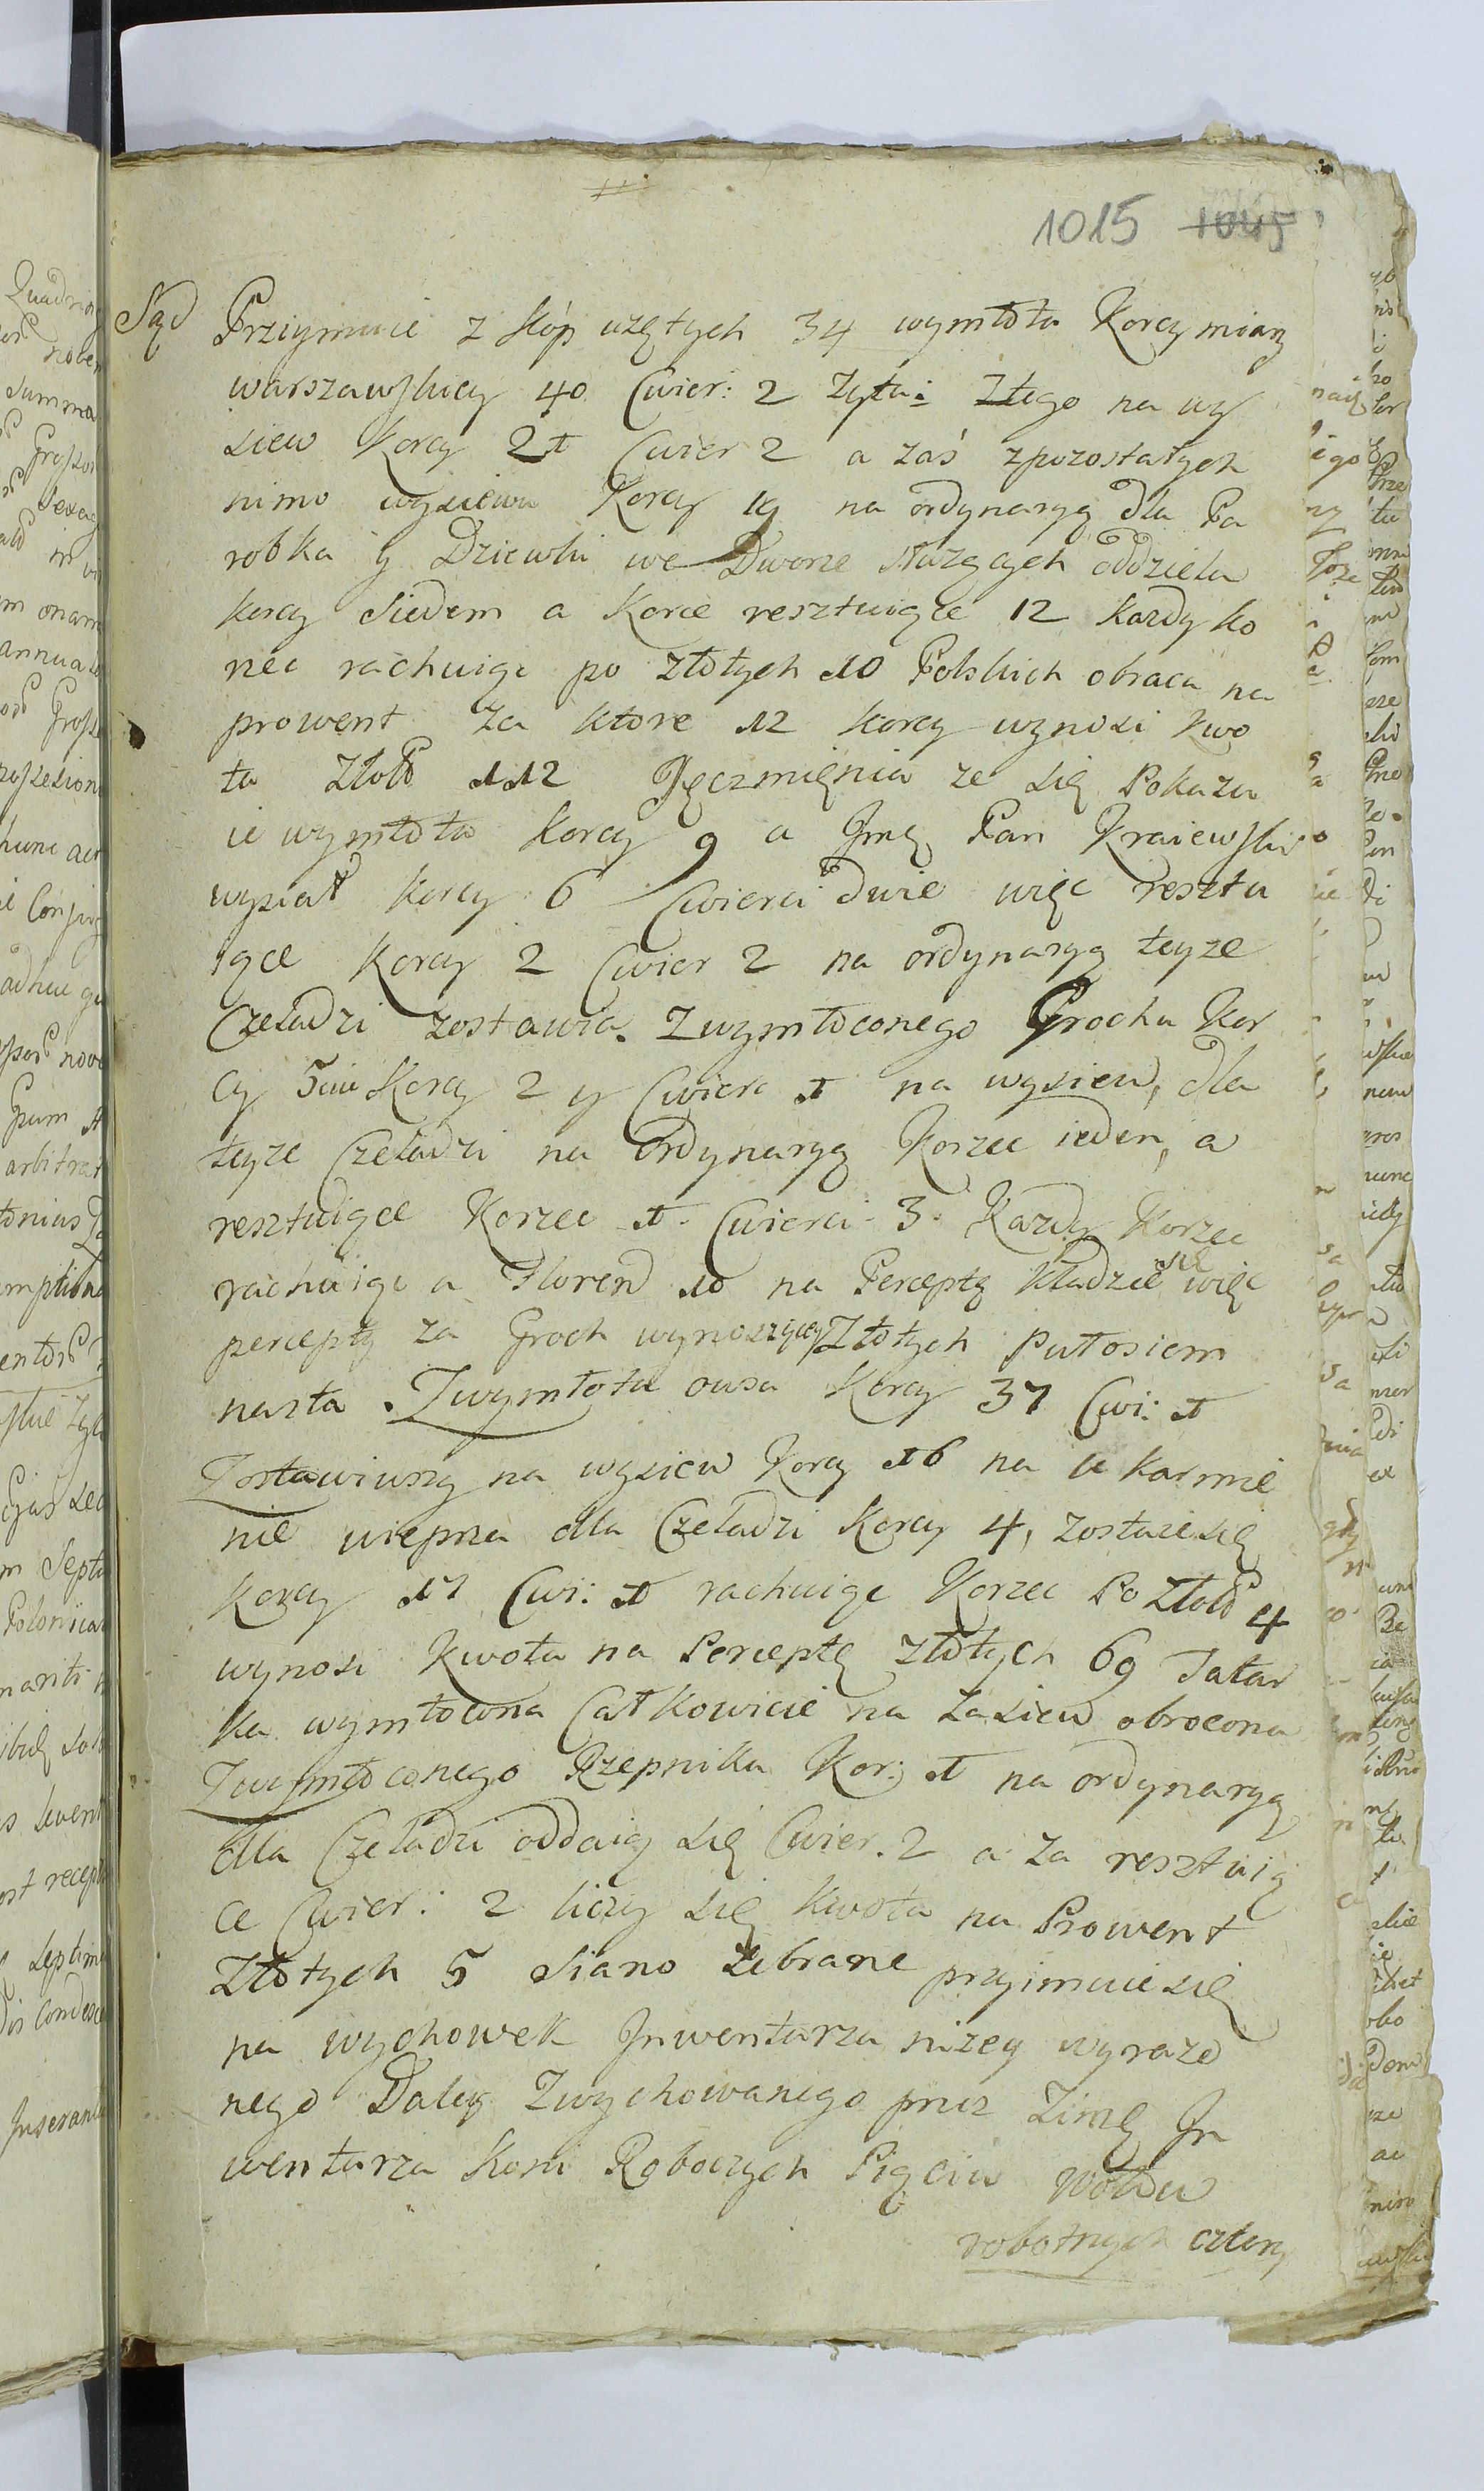 1015 1045
Sąd Przyimuie z kóp użętych 34 wymłótu Korcy miary
warszawskiey 40 Cwier: 2 żyta: Ztego na wy
siew Korcy 21 Cwier 2 a zaś zpozostałych
nimo wysiewu Korcy 19 na ordynaryą dla Pa
robka y Dziewki we Dworze służących oddziela
korcy siedem a Korce resztuiące 12 każdy ko
rzec rachuiąc po złotych 10 Polskich obraca na
prowent za ktore 12 korcy wynosi kwo
ta Złotp 112 Jęczmięnia ze się Pokazu
ie wymłótu korcy 9 a Jmę Pan Kraiewski
wysiał korcy 6 Cwierci dwie więc resztu
iące Korcy 2 Cwier 2 na ordynaryą teyze
Czeladzi zostawia. Zwymłoconego Grochu Kor
cy 5ciu Korcy 2 y Cwierc 1 na wysiew, dla
teyze Czeladzi na Ordynaryą Korzec ieden, a
resztuiące Korzec 1. Cwierci 3. Kazdy Korzec
rachuiąc a Floren 10 na Perceptę kładzie się więc
percepty za Groch wynoszącey Złotych Pułosiem
nasta. Zwymłotu owsa Korcy 37 Cwi: 1
Zostawiwszy na wysiew Korcy 16 na ukarmie
nie wieprza dla Czeladzi Korcy 4, zostaie się
Korcy 17 Cwi: 1 rachuiąc Korzec Po Złotp 4
wynosi Kwota na Perceptę złotych 69 Tatar
ka wymłocona Całkowicie na zasiew obrocona
Zwymłoconego Rzepniku Kor: 1 na ordynaryą
dla Czeladzi oddaią się Cwier. 2 a za resztuią
ce Cwier: 2 liczy się kwota na Prowent
Złotych 5 Siano zebrane przyimuie się
na wychowek Jnwentarza niżey wyrażo
nego Daley Zwychowanego przez Zimę Jn
wentarza Koni Roboczych Pięciu Wołów
robotnych cztery